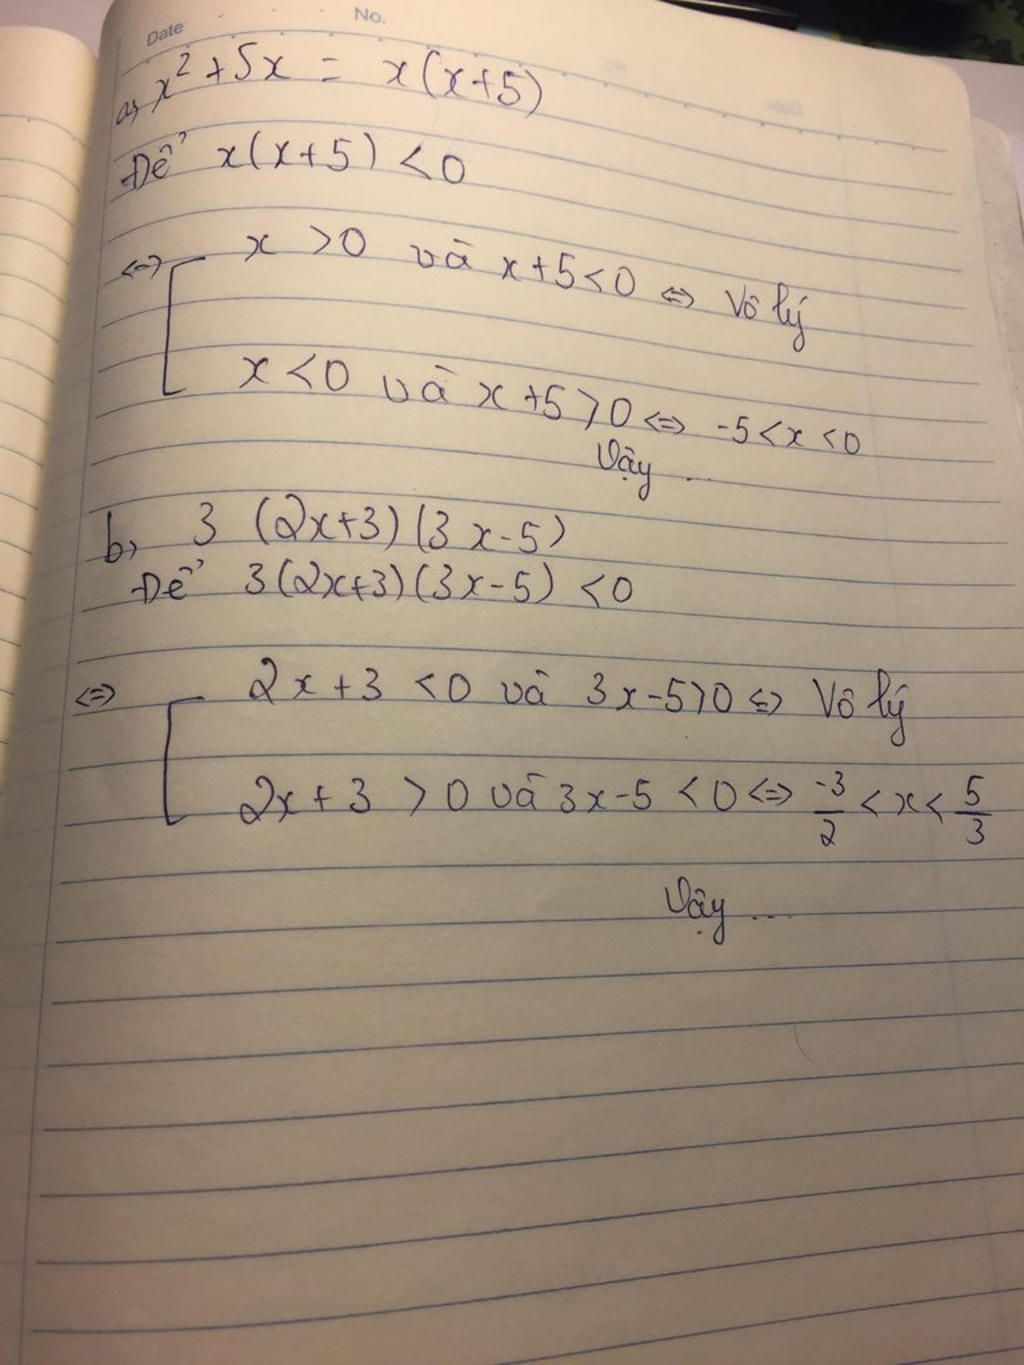 Date No.
a, x² + 5x = x(x+5)
Để x(x+5) < 0
<=> x > 0 và x+5 < 0 <=> Vô lý
x < 0 và x+5 > 0 <=> -5 < x < 0
Vậy ...
b, 3 (2x+3)(3x-5)
Để 3(2x+3)(3x-5) < 0
<=> 2x+3 < 0 và 3x-5 > 0 <=> Vô lý
2x+3 > 0 và 3x-5 < 0 <=> -3/2 < x < 5/3
Vậy ...